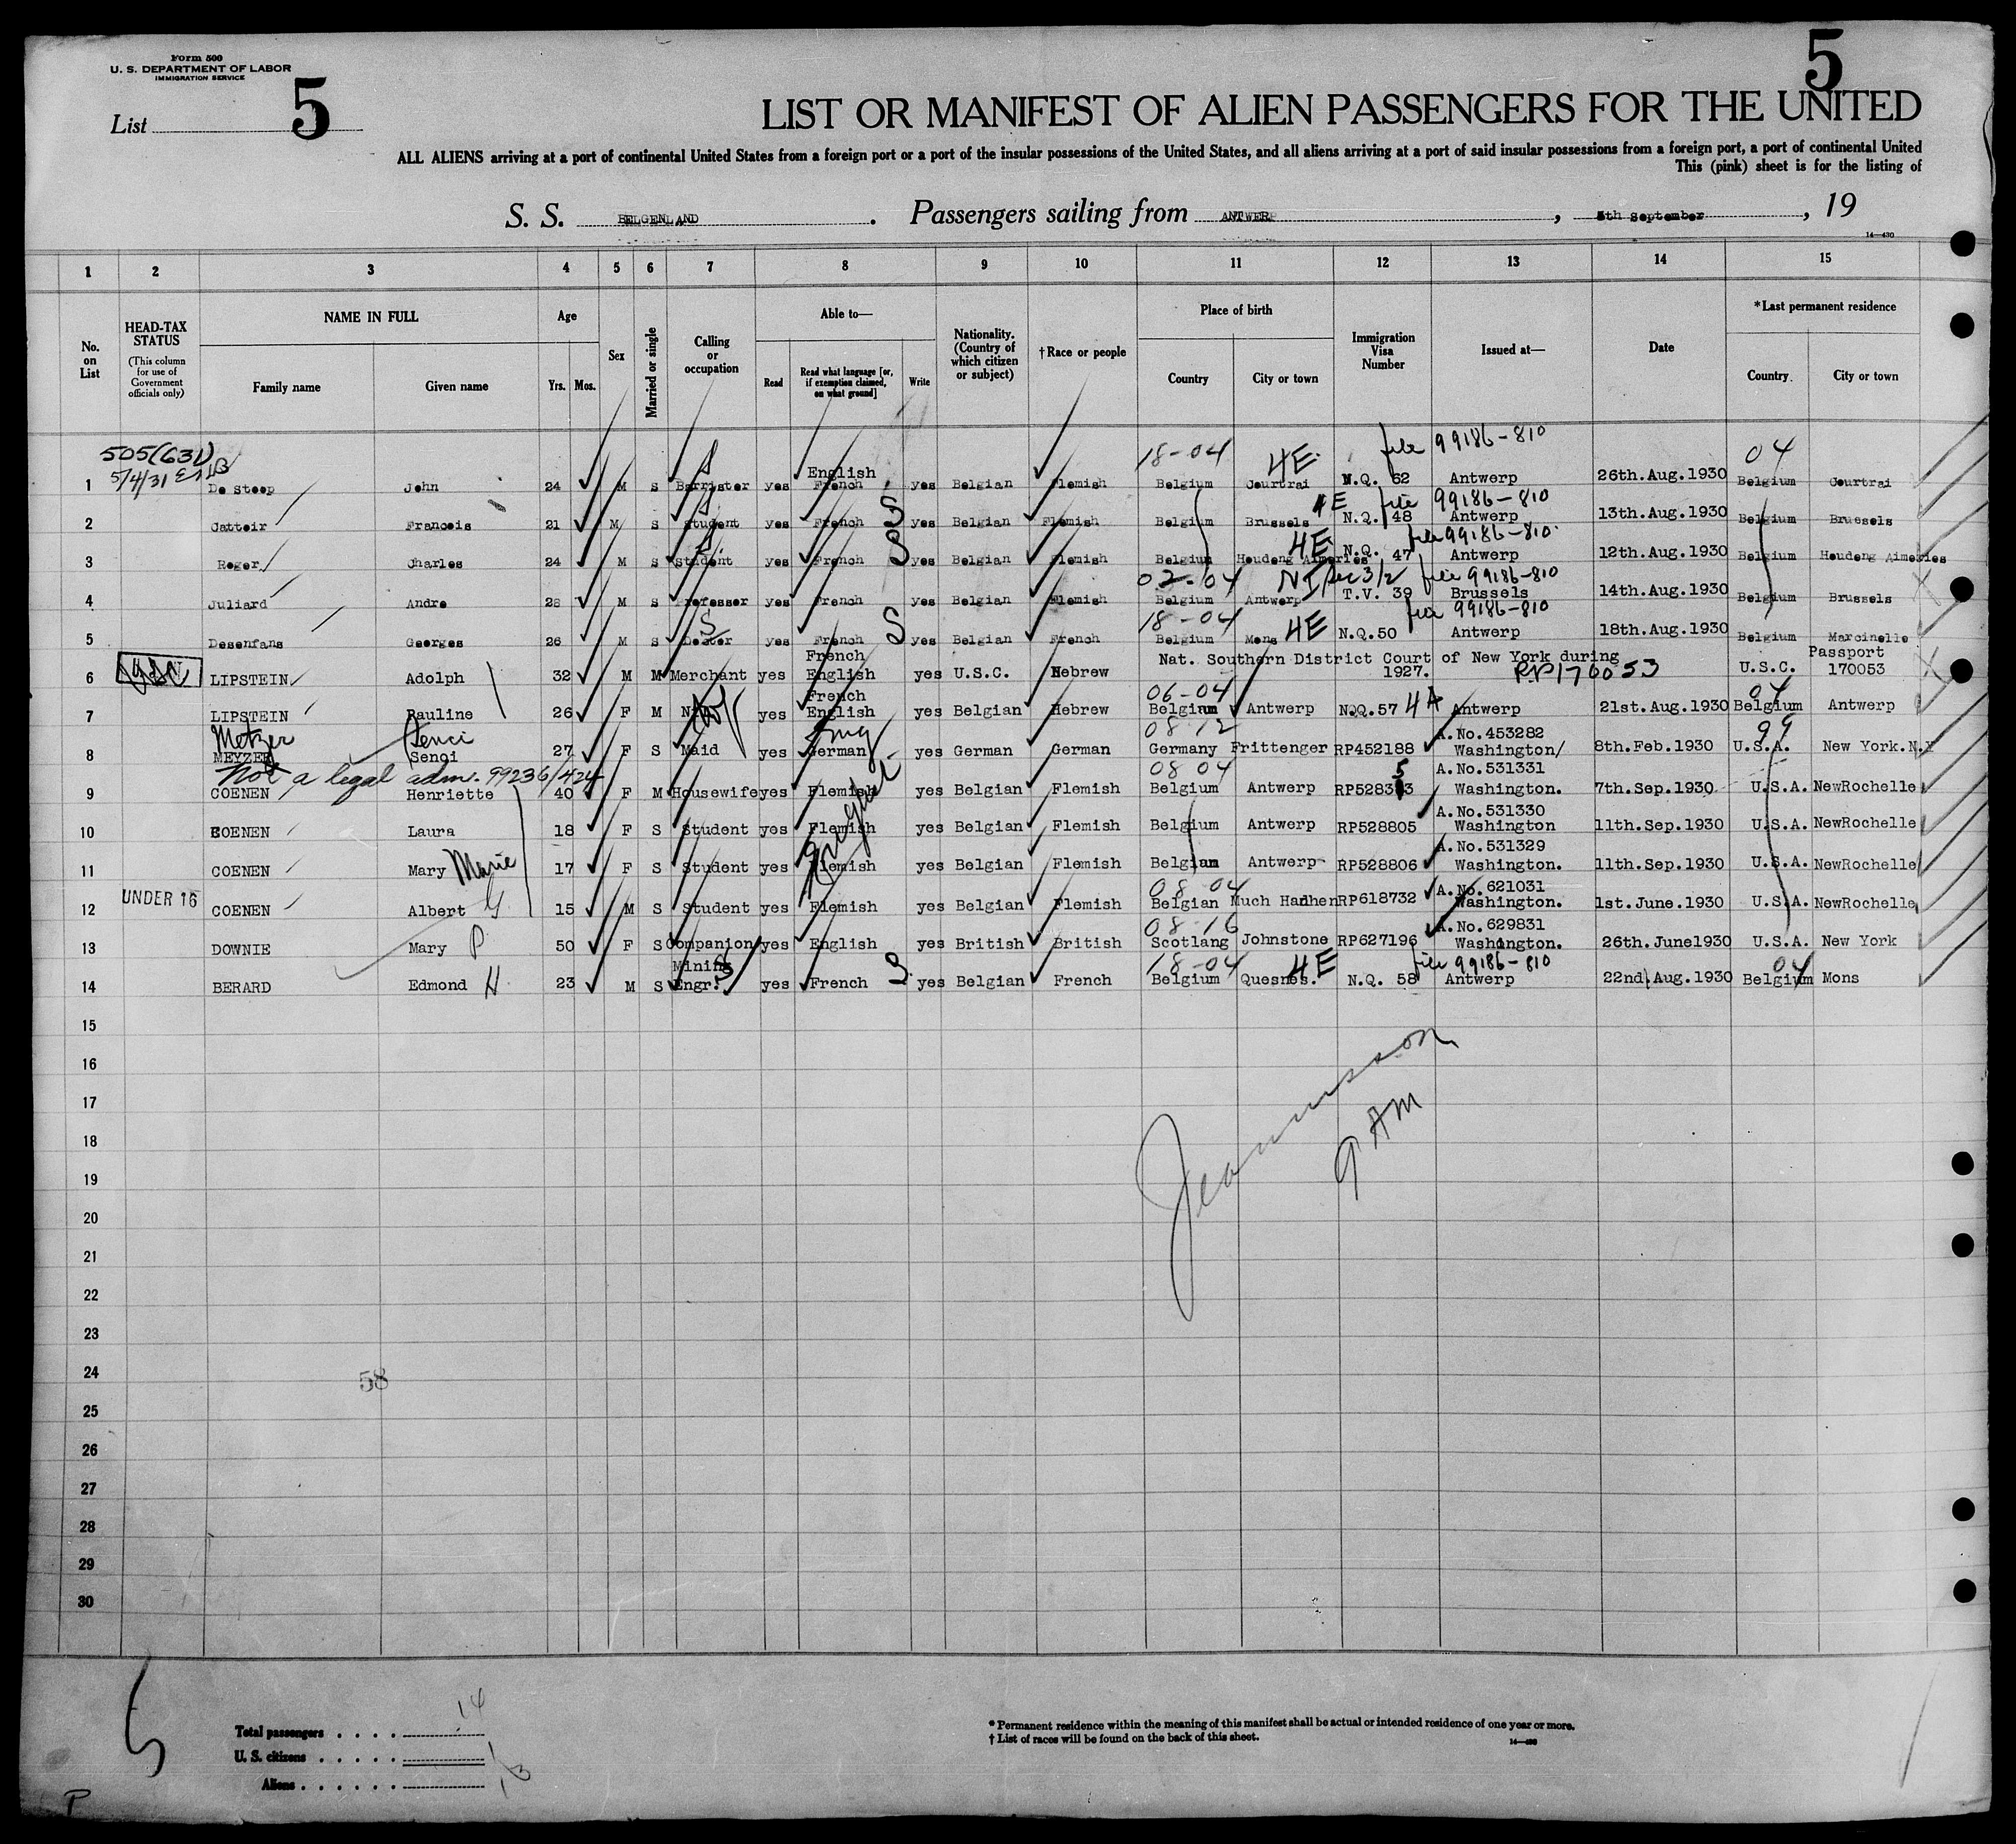 Form 500
U. S. DEPARTMENT OF LABOR
IMMIGRATION SERVICE
List 5
5
LIST OR MANIFEST OF ALIEN PASSENGERS FOR THE UNITED
ALL ALIENS arriving at a port of continental United States from a foreign port or a port of the insular possessions of the United States, and all aliens arriving at a port of said insular possessions from a foreign port, a port of continental United
This (pink) sheet is for the listing of
S. S. BELGENLAND . Passengers sailing from ANTWERP , 5th September , 19
14—430
1 2 3 4 5 6 7 8 9 10 11 12 13 14 15
No. on List
HEAD-TAX STATUS
(This column for use of Government officials only)
NAME IN FULL
Family name Given name
Age
Yrs. Mos.
Sex
Married or single
Calling or occupation
Able to—
Read
Read what language [or, if exemption claimed, on what ground]
Write
Nationality. (Country of which citizen or subject)
† Race or people
Place of birth
Country City or town
Immigration Visa Number
Issued at—
Date
*Last permanent residence
Country. City or town
505(631)
5/4/31
18-04 4E file 99186-810 04
English
1 De Stoop John 24 M S Barrister yes French yes Belgian Flemish Belgium Courtrai N.Q. 62 Antwerp 26th.Aug.1930 Belgium Courtrai
4E file 99186-810
2 Cattoir Francois 21 M S Student yes French S yes Belgian Flemish Belgium Brussels N.Q. 48 Antwerp 13th.Aug.1930 Belgium Brussels
4E file 99186-810
3 Roger Charles 24 M S Student yes French S yes Belgian Flemish Belgium Houdeng Aimeries N.Q. 47 Antwerp 12th.Aug.1930 Belgium Houdeng Aimeries
02-04 NI Sec 3/2 file 99186-810
4 Juliard Andre 28 M S Professor yes French yes Belgian Flemish Belgium Antwerp T.V. 39 Brussels 14th.Aug.1930 Belgium Brussels
18-04 4E file 99186-810
5 Desenfans Georges 26 M S Doctor yes French S yes Belgian French Belgium Mons N.Q.50 Antwerp 18th.Aug.1930 Belgium Marcinelle
French Nat. Southern District Court of New York during Passport
6 LIPSTEIN Adolph 32 M M Merchant yes English yes U.S.C. Hebrew 1927. RP170053 U.S.C. 170053
French 06-04 04
7 LIPSTEIN Pauline 26 F M yes English yes Belgian Hebrew Belgium Antwerp NQQ.57 4A Antwerp 21st.Aug.1930 Belgium Antwerp
Metzer Senci Eng 08-12 A.No.453282 99
8 MEYZER Senci 27 F S Maid yes German yes German German Germany Frittenger RP452188 Washington/ 8th.Feb.1930 U.S.A. New York.N.Y
Not a legal adm. 99236/424 08 04 5 A.No.531331
9 COENEN Henriette 40 F M Housewife yes Flemish yes Belgian Flemish Belgium Antwerp RP52833 Washington. 7th.Sep.1930 U.S.A. NewRochelle
English A.No.531330
10 COENEN Laura 18 F S Student yes Flemish yes Belgian Flemish Belgium Antwerp RP528805 Washington 11th.Sep.1930 U.S.A. NewRochelle
A.No.531329
11 COENEN Mary Marie 17 F S Student yes Flemish yes Belgian Flemish Belgian Antwerp RP528806 Washington. 11th.Sep.1930 U.S.A. NewRochelle
UNDER 16 08-04 A.No.621031
12 COENEN Albert G. 15 M S Student yes Flemish yes Belgian Flemish Belgian Much Hadhen RP618732 Washington. 1st.June.1930 U.S.A. NewRochelle
08-16 A.No.629831
13 DOWNIE Mary P. 50 F S Companion yes English yes British British Scotlang Johnstone RP627196 Washington. 26th.June1930 U.S.A. New York
Mining 18-04 4E file 99186-810 04
14 BERARD Edmond H. 23 M S Engr. yes French S. yes Belgian French Belgium Quesnes. N.Q. 58 Antwerp 22nd.Aug.1930 Belgium Mons
15
16
17
9 AM
18
19
20
21
22
23
24
58
25
26
27
28
29
30
Total passengers . . . . 14
U. S. citizens . . . . . 1
Aliens . . . . . . 13
* Permanent residence within the meaning of this manifest shall be actual or intended residence of one year or more.
† List of races will be found on the back of this sheet.
14—430
P